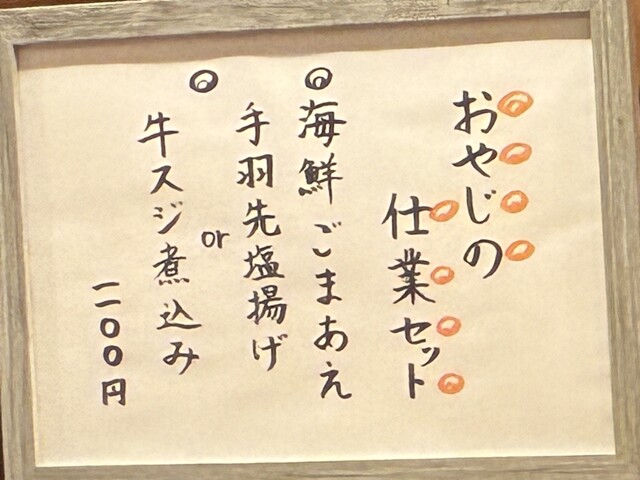 おやじの
仕業セット
◎海鮮ごまあえ
◎手羽先塩揚げ
or
牛スジ煮込み
一一〇〇円